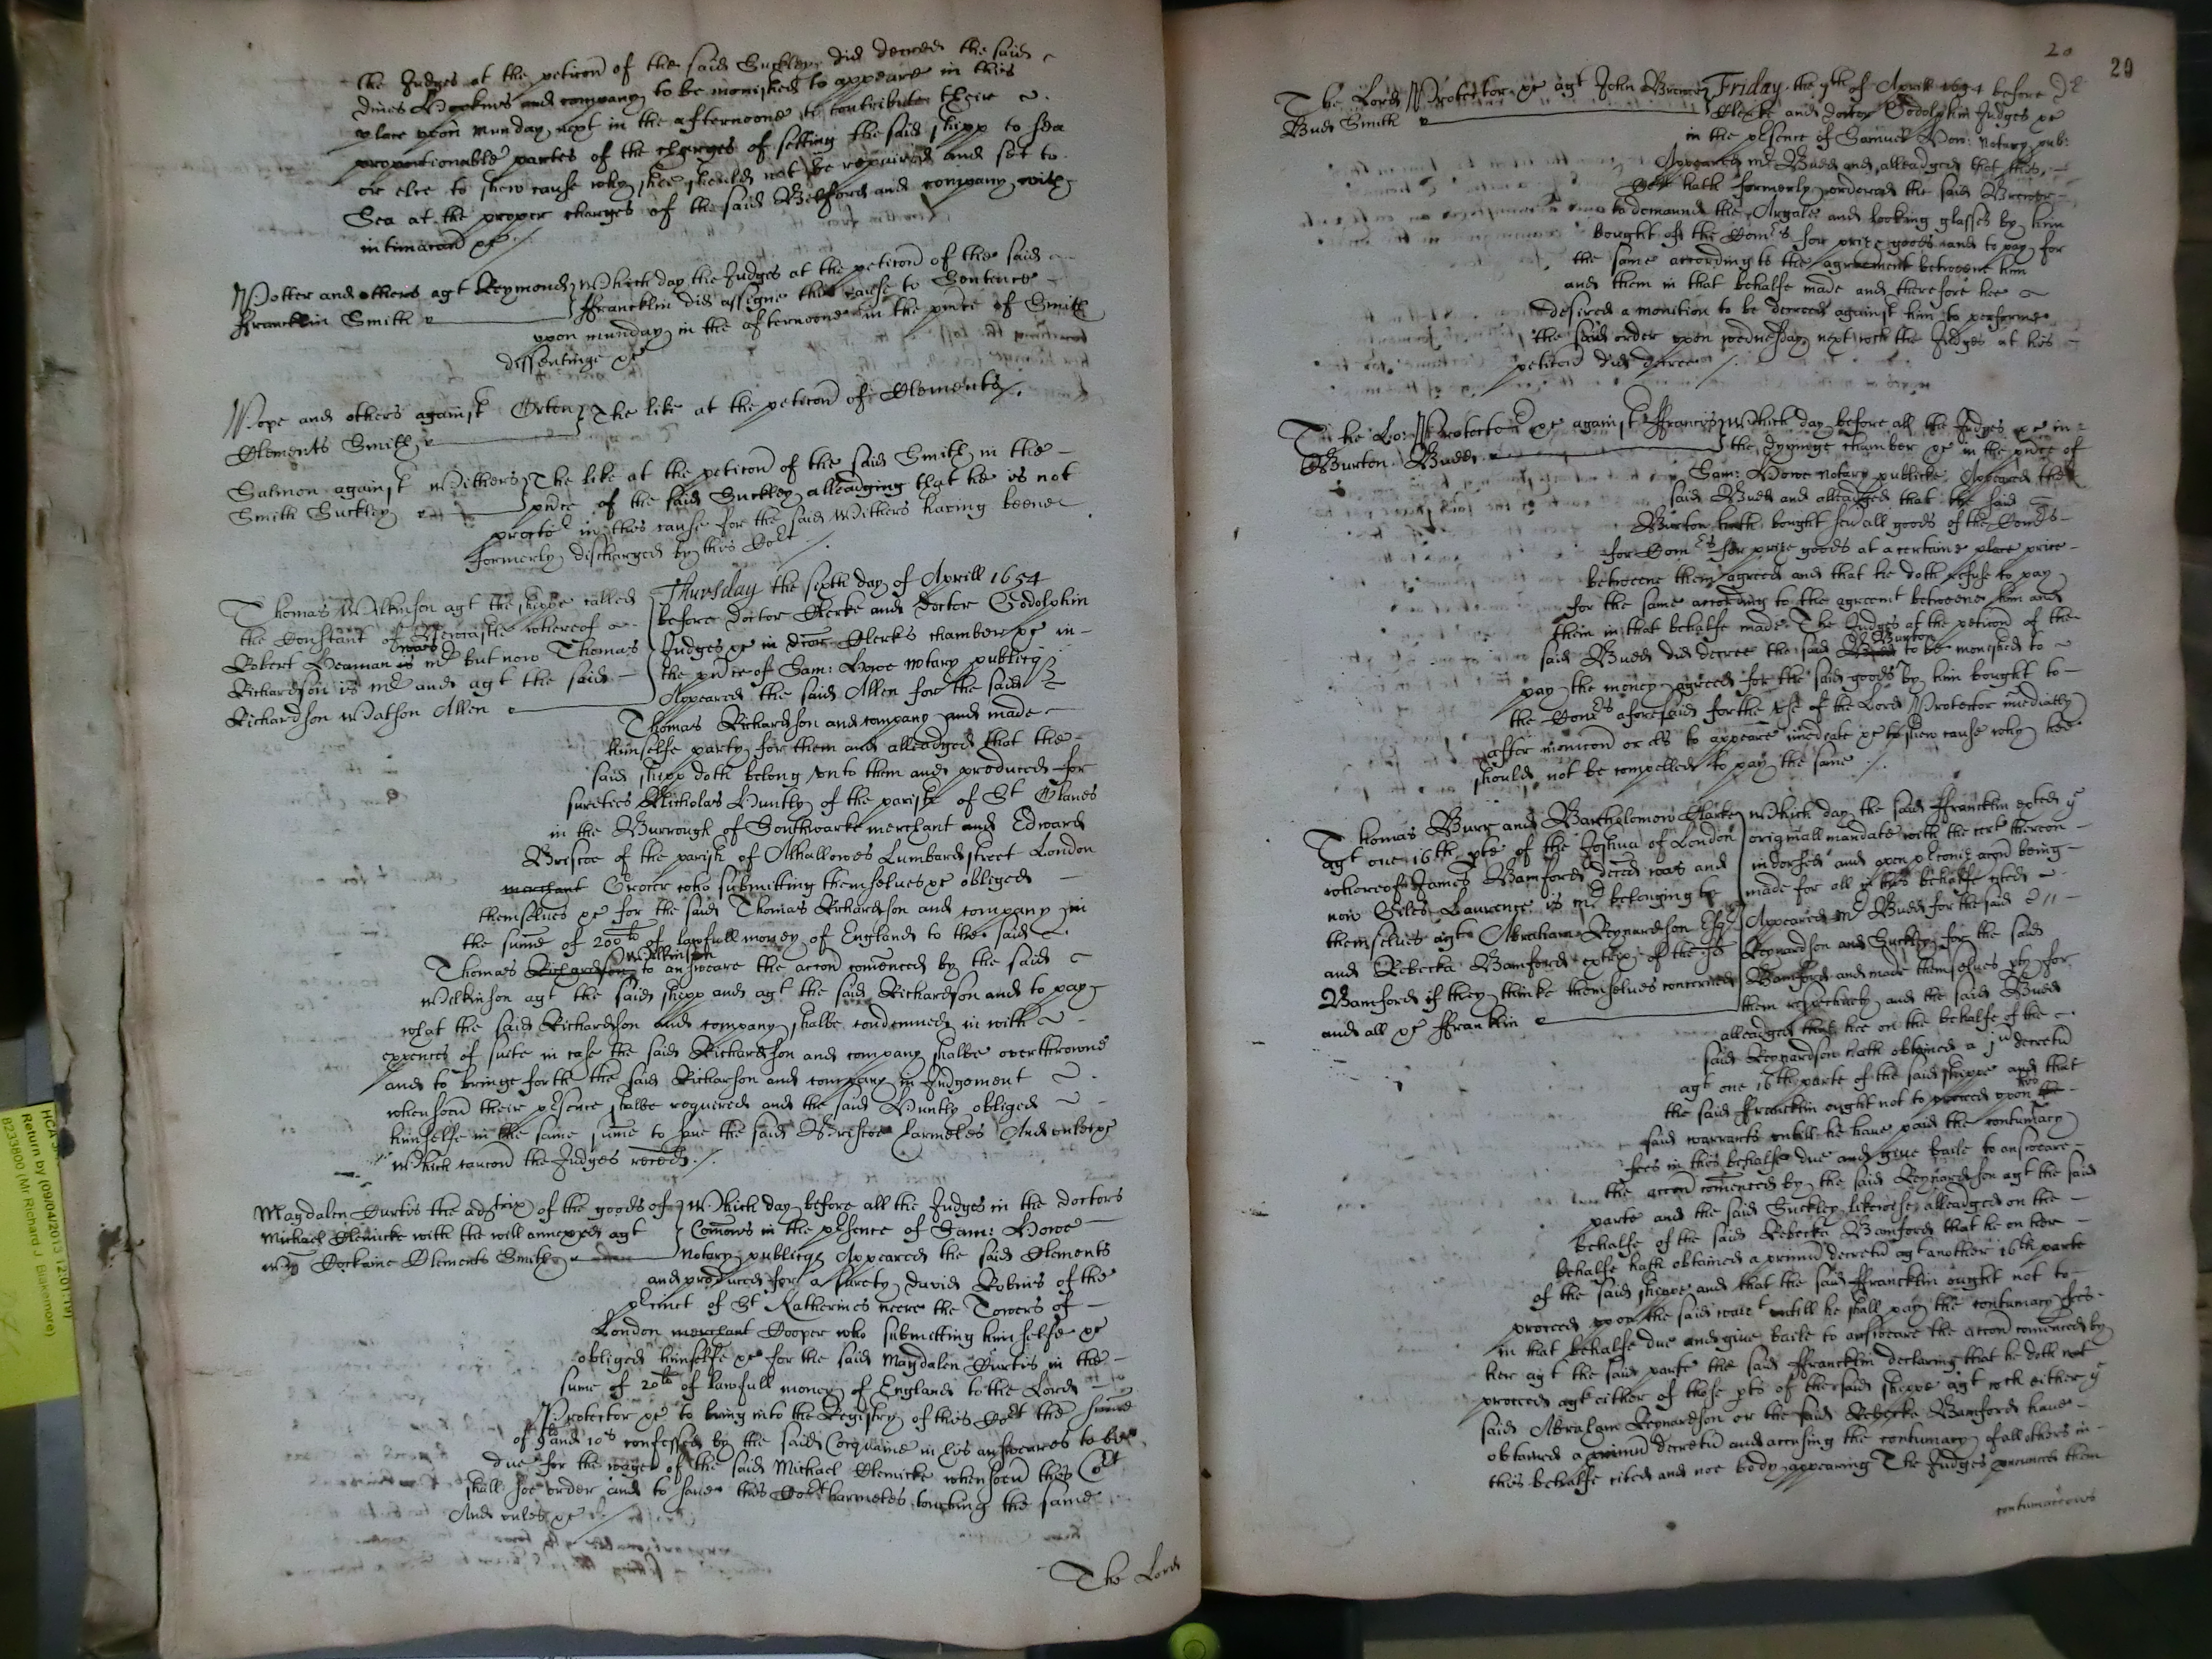 the Judges at the peticon of the said Suckley did decree the said
Dines Hopkins and company to be monished to appeare in this
place upon Munday next in the afternoone to contribute their
proportionable partes of the charges of setting the said shipp to sea
or else to shew cause why shee should not be repaired and set to
Sea at the proper charges of the said Belford and company with
intimacon &c
Potter and others agt Reymond
Francklin Smith
Which day the Judges at the peticon of the said
Francklin did assigne this cause to Sentence
upon munday in the afternoone in the pnce of Smith
dissentinge &c
Pope and others against Orton
Clements Smith
The like at the peticon of Clements
Salmon against Withers
Smith Suckley
The like at the peticon of the said Smith in the
pnce of the said Suckley alleadging that he is not
proctor in this cause for the said Withers having beene
formerly discharged by this Cort
Thomas Wilkinson agt the shippe called
the Constant of Newcastle whereof
Robert Heaman is was mr but now Thomas
Richardson is mr and agt the said
Richardson Watson Allen
Thursday the sixth day of Aprill 1654
before Doctor Clerke and Doctor Godolphin
Judges &c in Doctor Clerks chamber &c in
the pnce of Sam: Howe notary publiq
Appeared the said Allen for the said
Thomas Richardson and company and made
himselfe party for them and alleadged that the
said shipp doth belong unto them and produced for
sureties Nicholas Huntly of the parish of St Olaves
in the Burrough of Southwarke merchant and Edward
Briscoe of the parish of Alhallowes Lumbard street London
merchant Grocer who submitting themselves &c obliged
themselves &c for the said Thomas Richardson and company in
the summe of 200li of lawfull money of England to the said
Thomas Richardson Wilkinson to answeare the accon comenced by the said
Wilkinson agt the said shipp and agt the said Richardson and to pay
what the said Richardson and company shalbe condemned in with
expences of suite in case the said Richardson and company shalbe overthrowne
and to bringe forth the said Richarson and company in Judgement
whensoever their psence shalbe required and the said Huntly obliged
himselfe in the same summe to save the said Briscoe harmeles And unles &c
Which caucon the Judges received
Magdalen Curtis the admtrix of the goods of
Michael Clemicke with the will annexed agt
Wm Corkaine Clements Smith
Which day before all the Judges in the doctors
Comons in the psence of Sam: Howe
notary publiq Appeared the said Clements
and produced for a surety David Robins of the
precinct of St Katherines neere the Tower of
London merchant Cooper who submitting himselfe &c
obliged himselfe &c for the said Magdalen Curtis in the
sume of 20li of lawfull money of England to the Lord
Protector &c to bring into the Registry of this Cort the summe
of 9li and 10s confessed by the said Corquaine in his answeares to bee
due for the wages of the said Michael Clemicke whensoever this Cort
shall soe order and to save this Cort harmeles touching the same
And unles &c
The Lord
20
20
The Lord Protector &c agt John Brewer
Budd Smith
Friday the 7th of Aprill 1654 before Dr
Clerke and Doctor Godolphin Judges &c
in the psence of Samuel How: Notary pub:
Appeared mr Budd and alleadged that this
Cort hath formerly ordered the said Brewer
to demaund the Argale and looking glasses by him
bought of the Comrs for prize goods and to pay for
the same according to the agreement betweene him
and them in that behalfe made and therefore hee
desired a monition to be decreed against him to performe
the said order upon wednesday next wch the Judges at his
peticon did decree
The Lo: Protector &c against Francis
Burton. Budd
Which day before all the Judges &c in
the dyninge chamber &c in the pnce of
Sam: Howe notary publicke Appeared the
said Budd and alleadged that the said
Burton hath bought sevall goods of the Comrs
for Comrs for prize goods at a certaine place price
betweene them agreed and that he doth refuse to pay
for the same according to the agreemt betweene him and
them in that behalfe made The Judges at the peticon of the
said Budd did decree the said Budd Burton to be monished to
pay the money agreed for the said goods by him bought to
the Comrs aforesaid for the use of the Lord Protector imediatly
after monicon or els to appeare imediate &c to shew cause why hee
should not be compelled to pay the same
Thomas Burr and Bartholomew Clarke
agt one 16th pte of the Joshua of London
whereof James Bamford deced was and
now Giles Laurence is mr belonging to
themselves agt Abraham Reynardson Esqr
and Rebecka Bamford extrix of the sd
Bamford if they thinke themselves concerned
and all &c Franklin
Which day the said Francklin exhted ye
originall mandate with the cert thereon
indorsed and upon pconizacon being
made for all in this behalfe cited
Appeared mr Budd for the said
Reynardson and Suckley for the said
Bamford and made themselves pty for
them respectively and the said Budd
alleadged that hee on the behalfe of the
said Reynardson hath obtained a jum decretu
agt one 16th parte of the said shippe and that
the said Francklin ought not to proceed upon the his
said warrants untill he have paid the contumacy
fees in this behalfe due and give baile to answeare
the accon comenced by the said Reynardson agt the said
parte and the said Suckley likewise alleadged on the
behalfe of the said Rebecka Bamford that he on her
behalfe hath obtained a primu decretu agt another 16th parte
of the said shippe and that the said Francklin ought not to
proceed upon the said wart untill he shall pay the contumacy fees
in that behalfe due and give baile to answeare the accon comenced by
her agt the said parte the said Francklin declaring that he doth not
proceed agt either of those pts of the said shippe agt wch either ye
said Abraham Reynardson or the said Rebecka Bamford have
obtained a primu decretu and accusing the contumacy of all others in
this behalfe cited and noe body appearing The Judges pnounced them
contumacious
HCA
Return by (09/04/2013 12:01:19)
8233800 (Mr Richard J Blakemore)